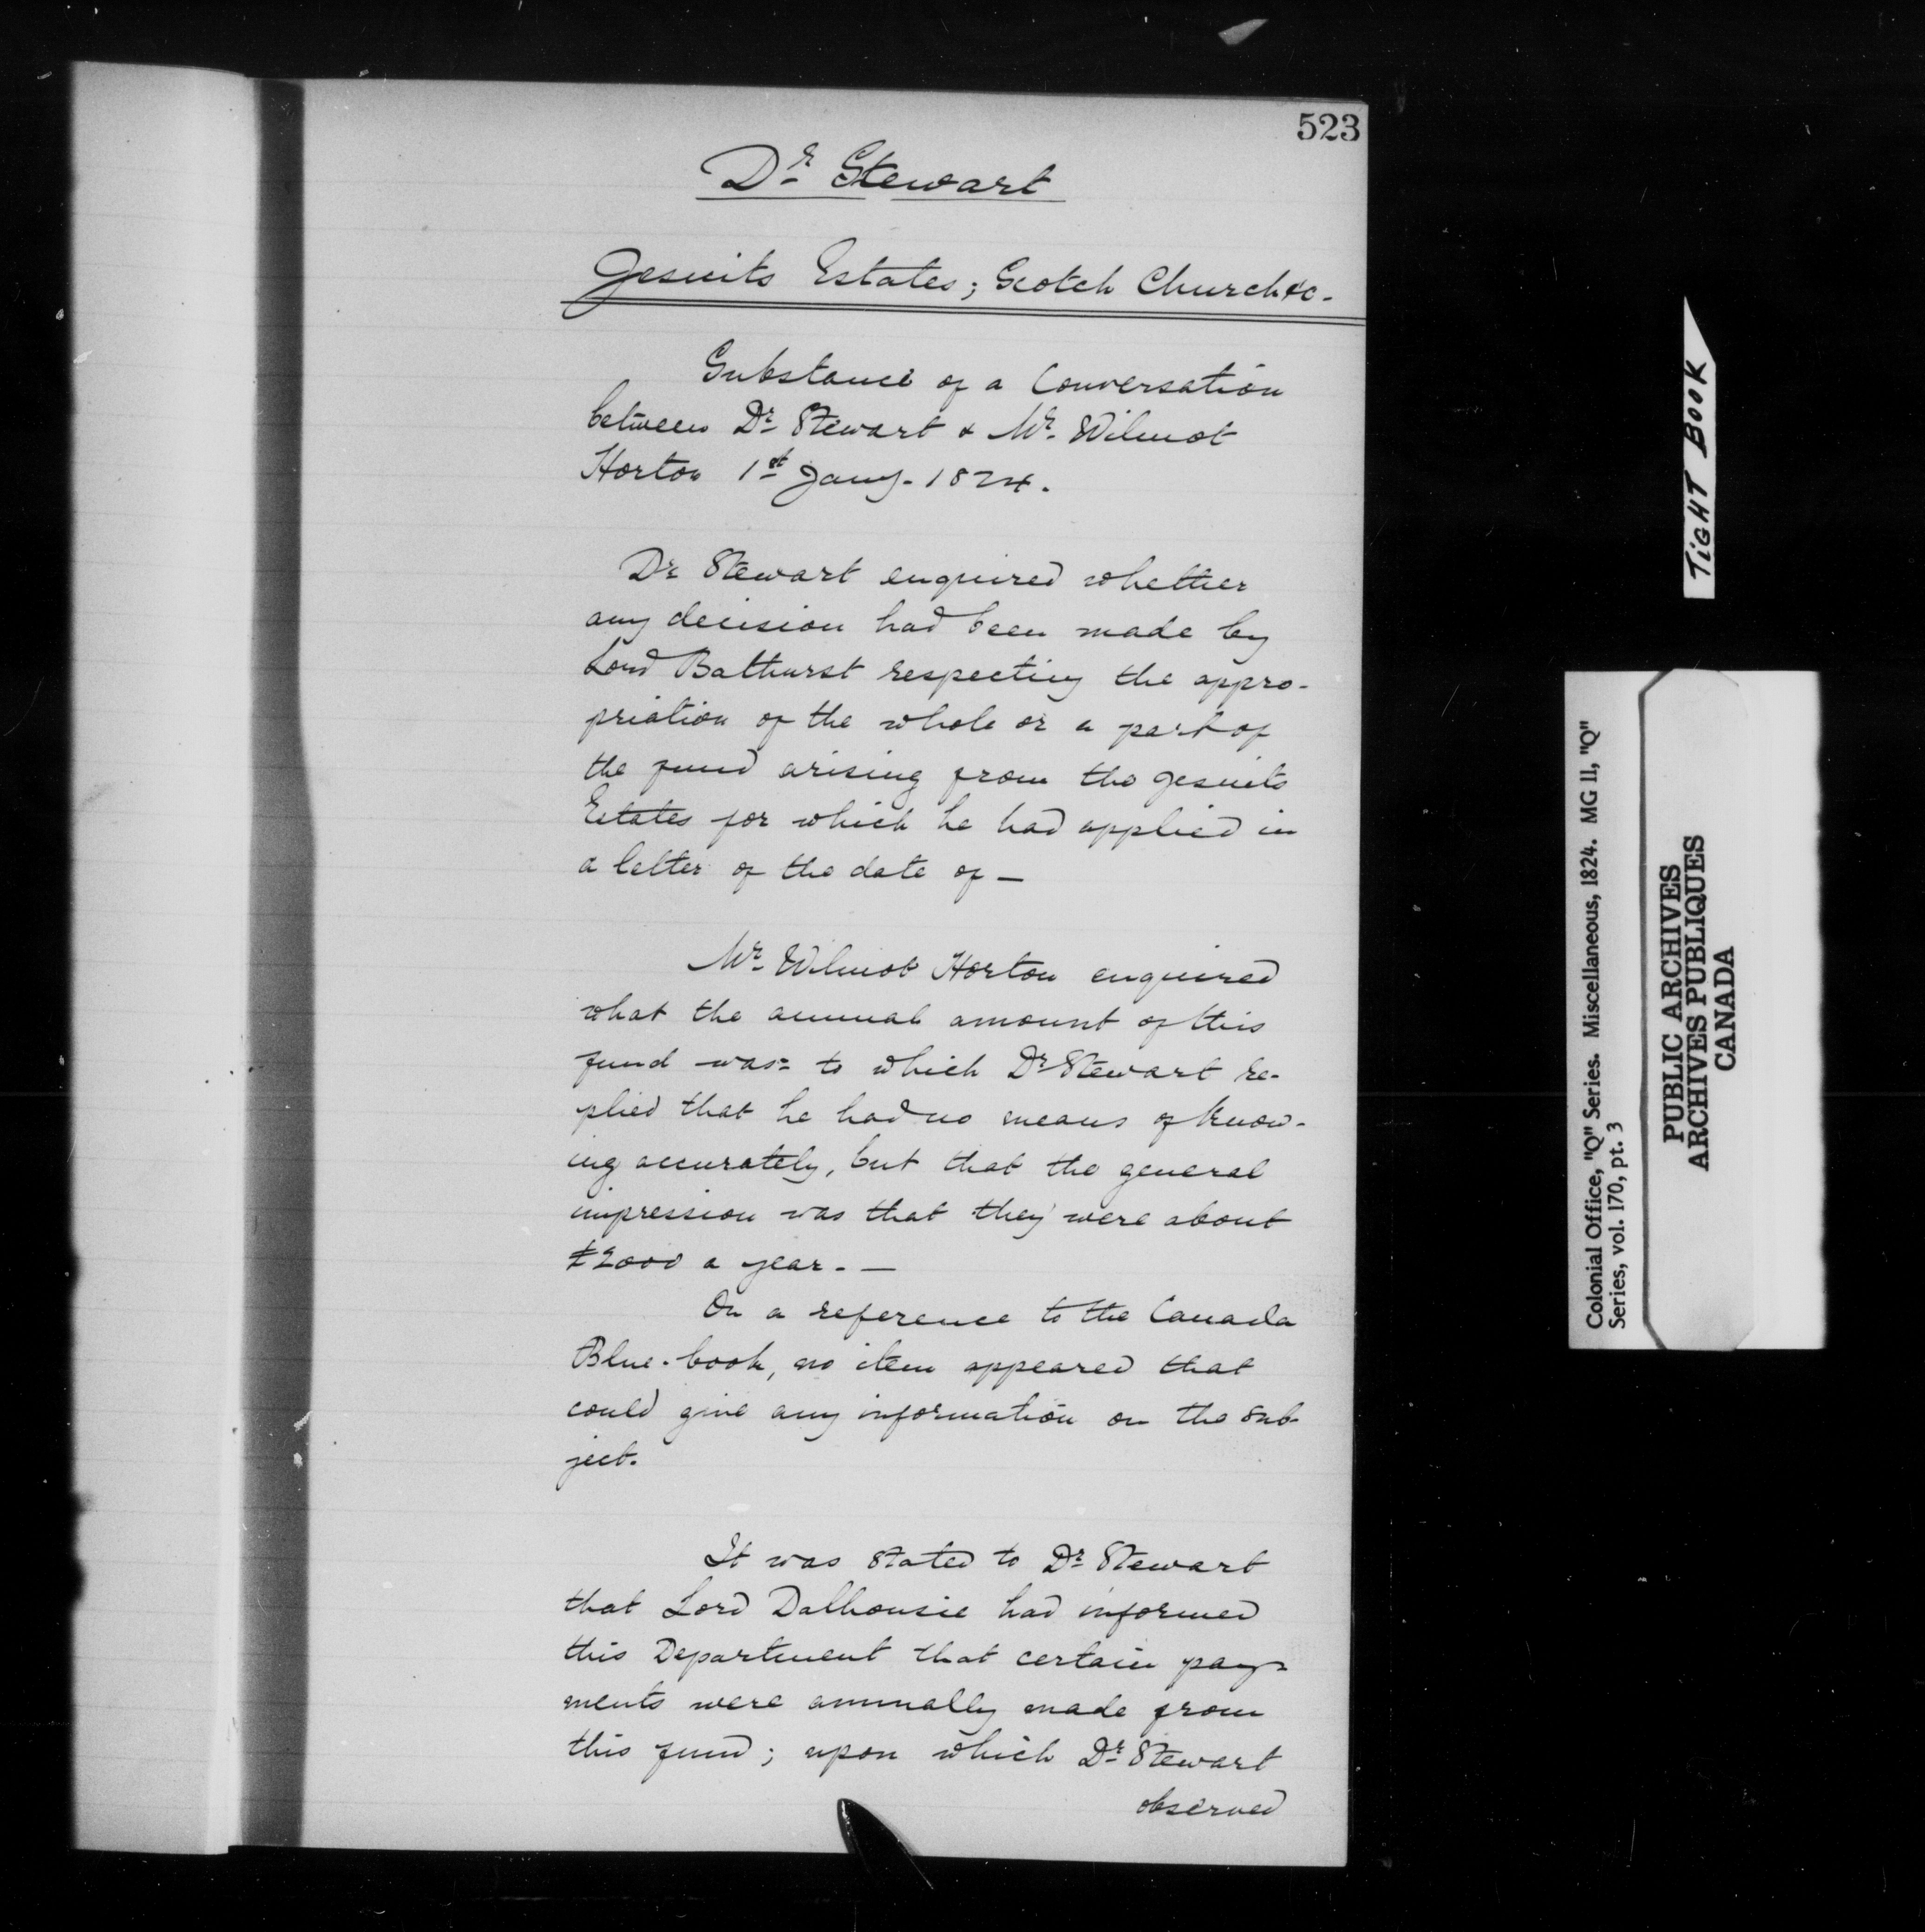 523
Dr Stewart
Jesuits Estates; Scotch Church &c.
Substance of a Conversation
between Dr Stewart & Mr. Wilmot
Horton 1st Jany. 1824.
Dr Stewart enquired whether
any decision had been made by
Lord Bathurst respecting the appro-
priation of the whole or a part of
the fund arising from the Jesuits
Estates for which he had applied in
a letter of the date of —
Mr. Wilmot Horton enquired
what the annual amount of this
fund was - to which Dr Stewart re-
plied that he had no means of know-
ing accurately, but that the general
impression was that they were about
£2000 a year. —
On a reference to the Canada
Blue-book, no item appeared that
could give any information on the sub-
ject.
It was stated to Dr Stewart
that Lord Dalhousie had informed
this Department that certain pay-
ments were annually made from
this fund; upon which Dr Stewart
observed
TiGHT BOOK
Colonial Office, "Q" Series. Miscellaneous, 1824. MG 11, "Q"
Series, vol. 170, pt. 3
PUBLIC ARCHIVES
ARCHIVES PUBLIQUES
CANADA